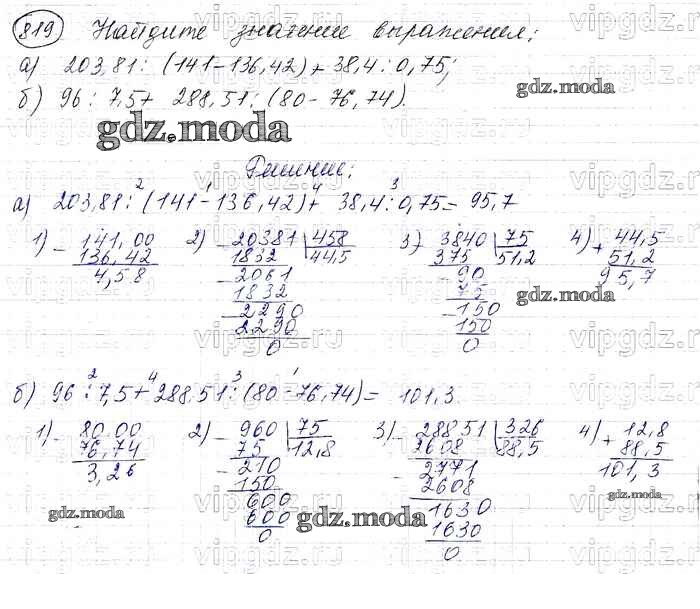 819 Найдите значение выражения:
а) 203,81 : (141 - 136,42) + 38,4 : 0,75;
б) 96 : 7,5 + 288,51 : (80 - 76,74).
gdz.moda
Решение:
2 1 4 3
а) 203,81 : (141 - 136,42) + 38,4 : 0,75 = 95,7
1) - 141,00 2) - 20381 | 458 3) - 3840 | 75 4) + 44,5
136,42 1832 44,5 375 51,2 51,2
4,58 - 2061 - 90 95,7
1832 75
- 2290 - 150
2290 150
0 0
gdz.moda
2 4 3 1
б) 96 : 7,5 + 288,51 : (80 - 76,74) = 101,3
1) - 80,00 2) - 960 | 75 3) - 28851 | 326 4) + 12,8
76,74 75 12,8 2608 88,5 88,5
3,26 - 210 - 2771 101,3
150 - 2608
600 1630
600 1630
0 0
gdz.moda gdz.moda gdz.moda
vipgdz.ru